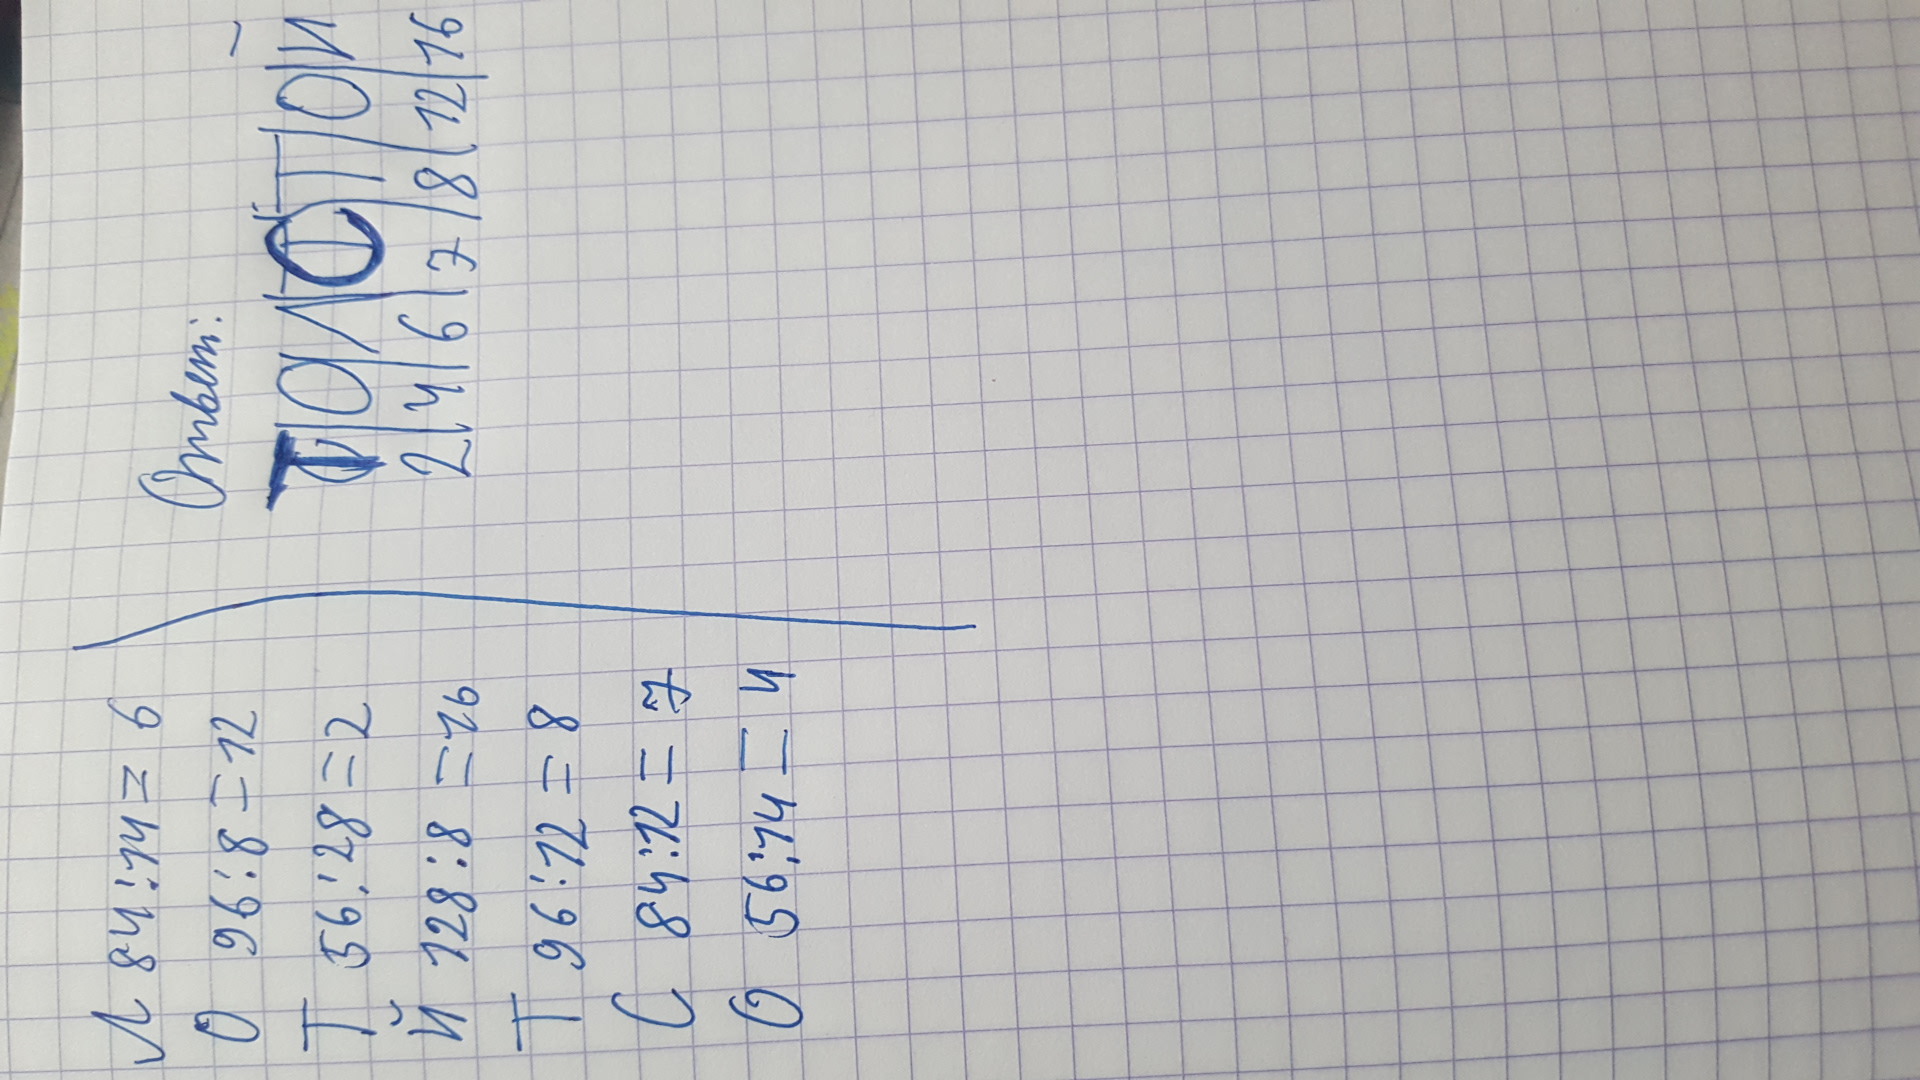 Л 84:14=6
О 96:8=12
Т 56:28=2
Й 128:8=16
Т 96:12=8
С 84:12=7
О 56:14=4
Ответ:
Т|О|Л|С|Т|О|Й
2|4|6|7|8|12|16